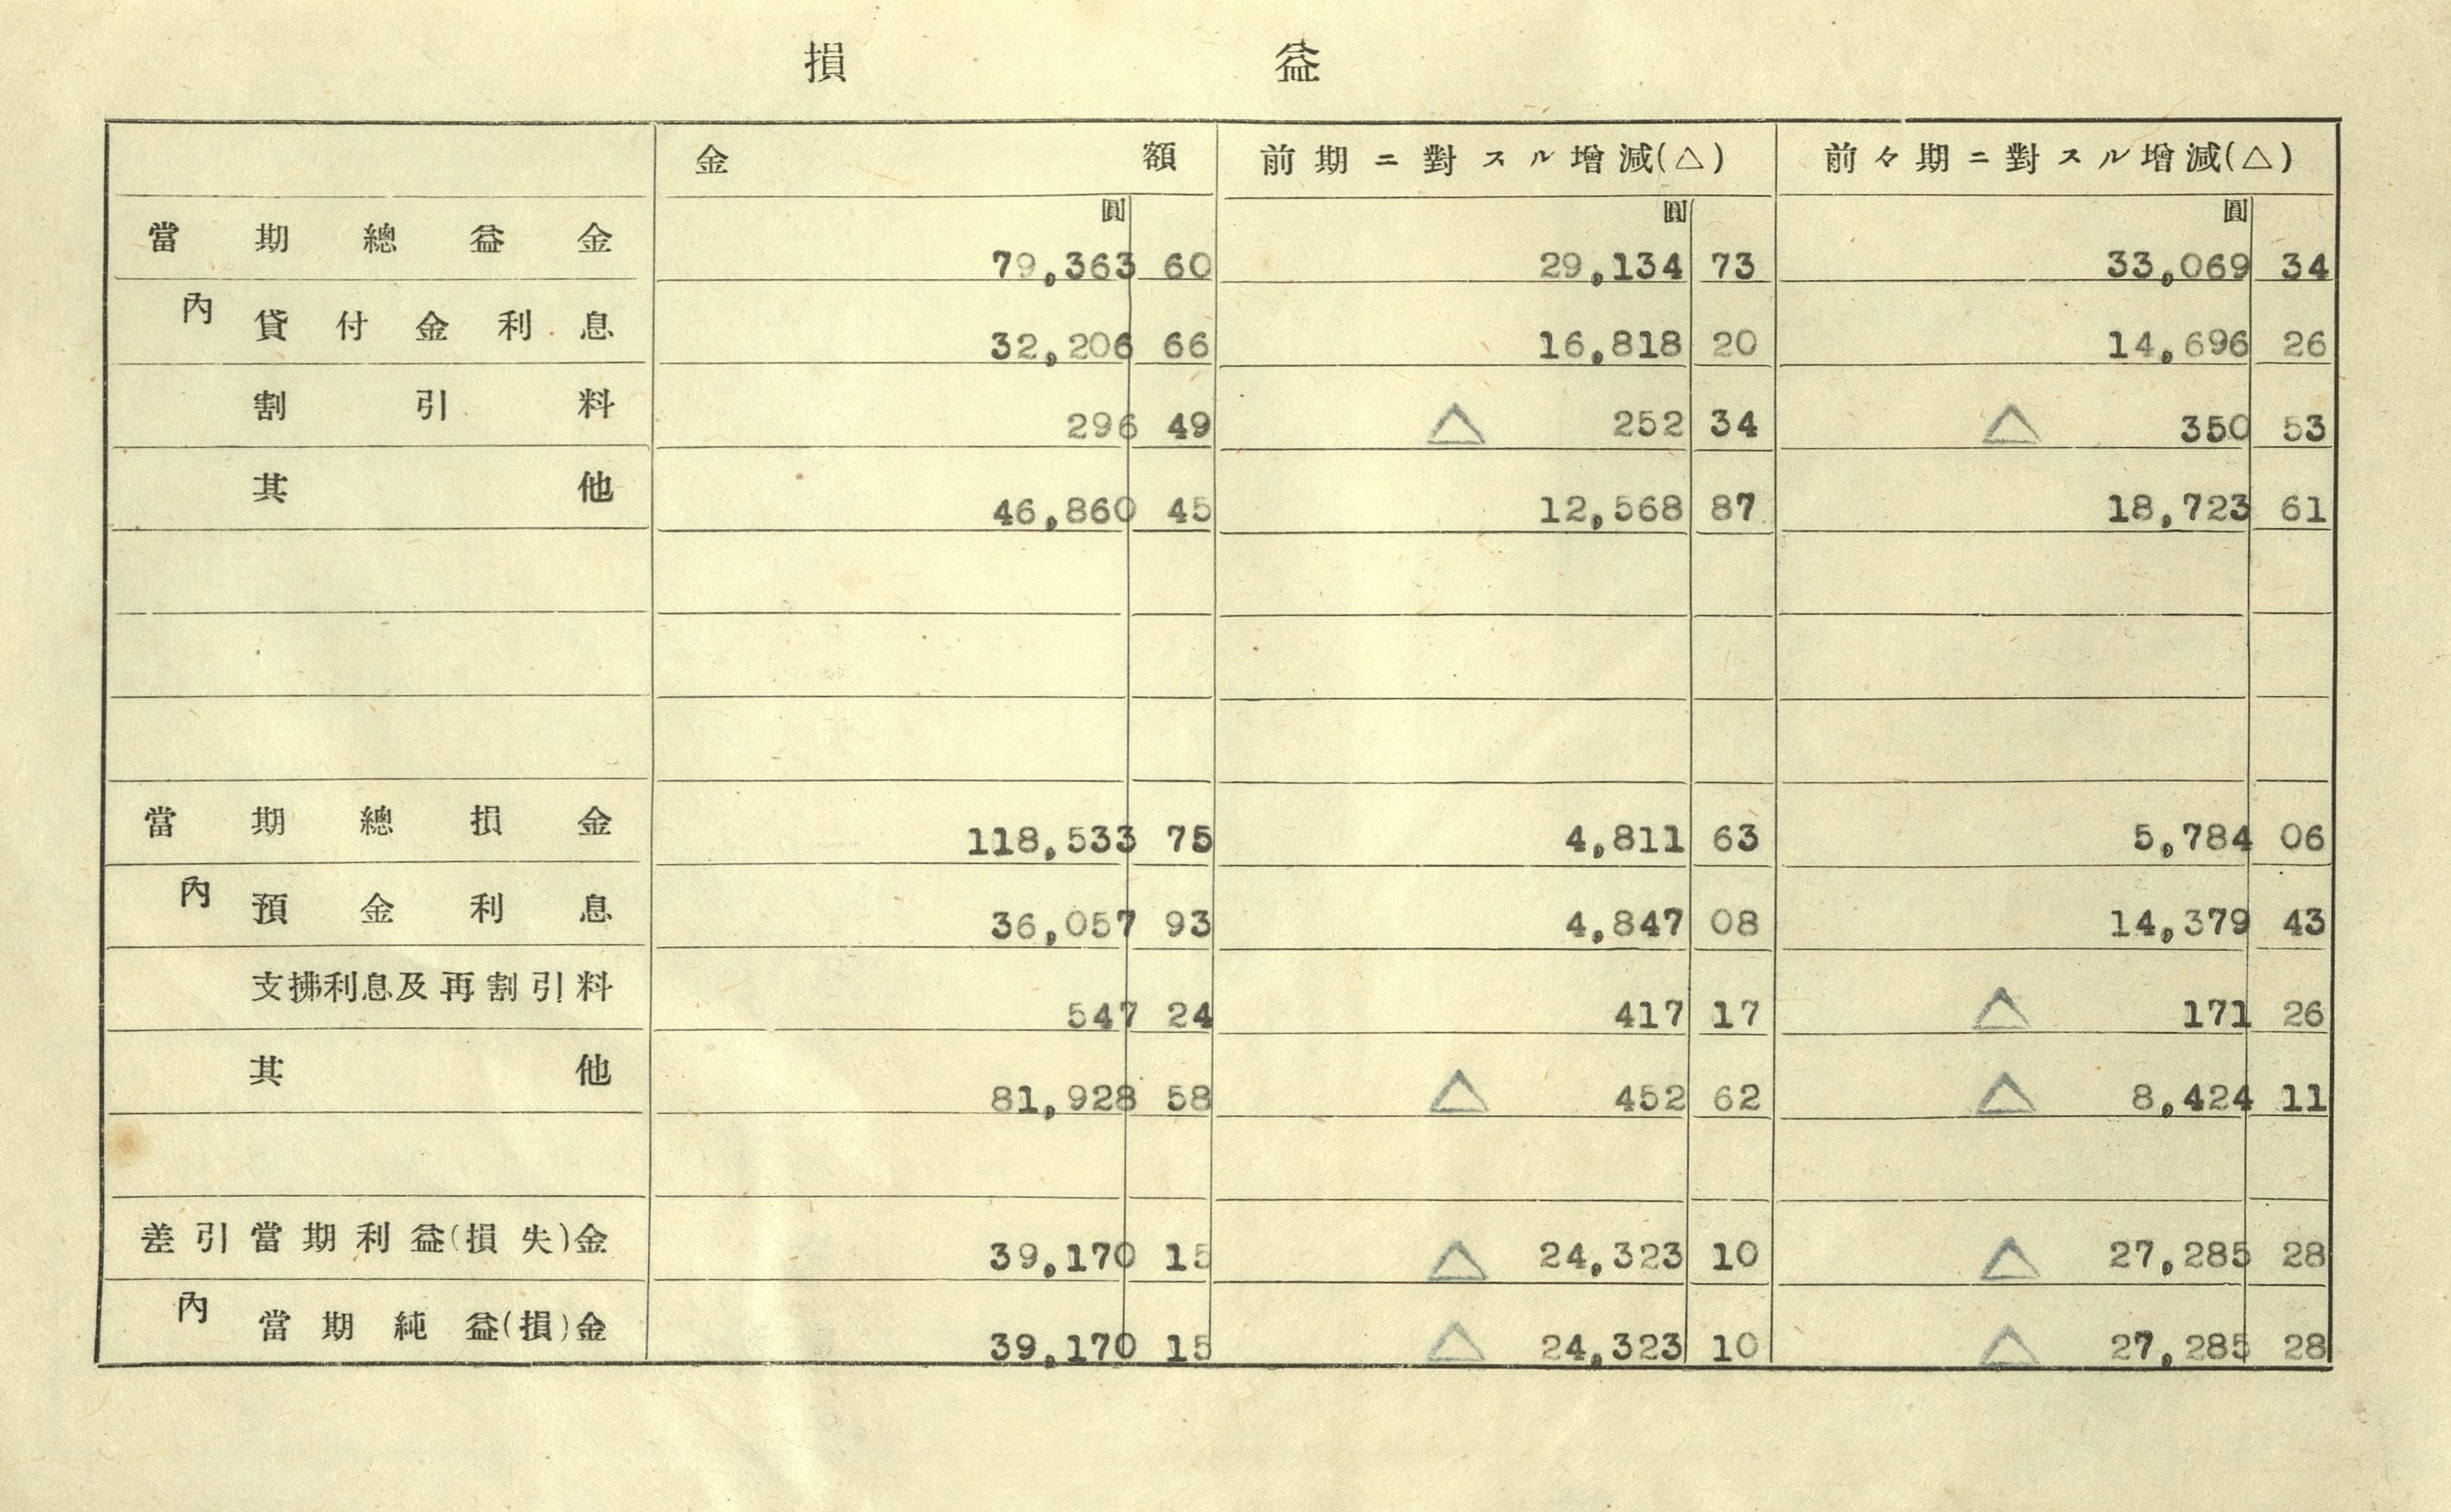 損益
金額 前期ニ對スル增減(△) 前々期ニ對スル增減(△)
圓 圓 圓
當期總益金 79,363 60 29,134 73 33,069 34
內 貸付金利息 32,206 66 16,818 20 14,696 26
割引料 296 49 △ 252 34 △ 350 53
其他 46,860 45 12,568 87 18,723 61
當期總損金 118,533 75 4,811 63 5,784 06
內 預金利息 36,057 93 4,847 08 14,379 43
支拂利息及再割引料 547 24 417 17 △ 171 26
其他 81,928 58 △ 452 62 △ 8,424 11
差引當期利益(損失)金 39,170 15 △ 24,323 10 △ 27,285 28
內 當期純益(損)金 39,170 15 △ 24,323 10 △ 27,285 28